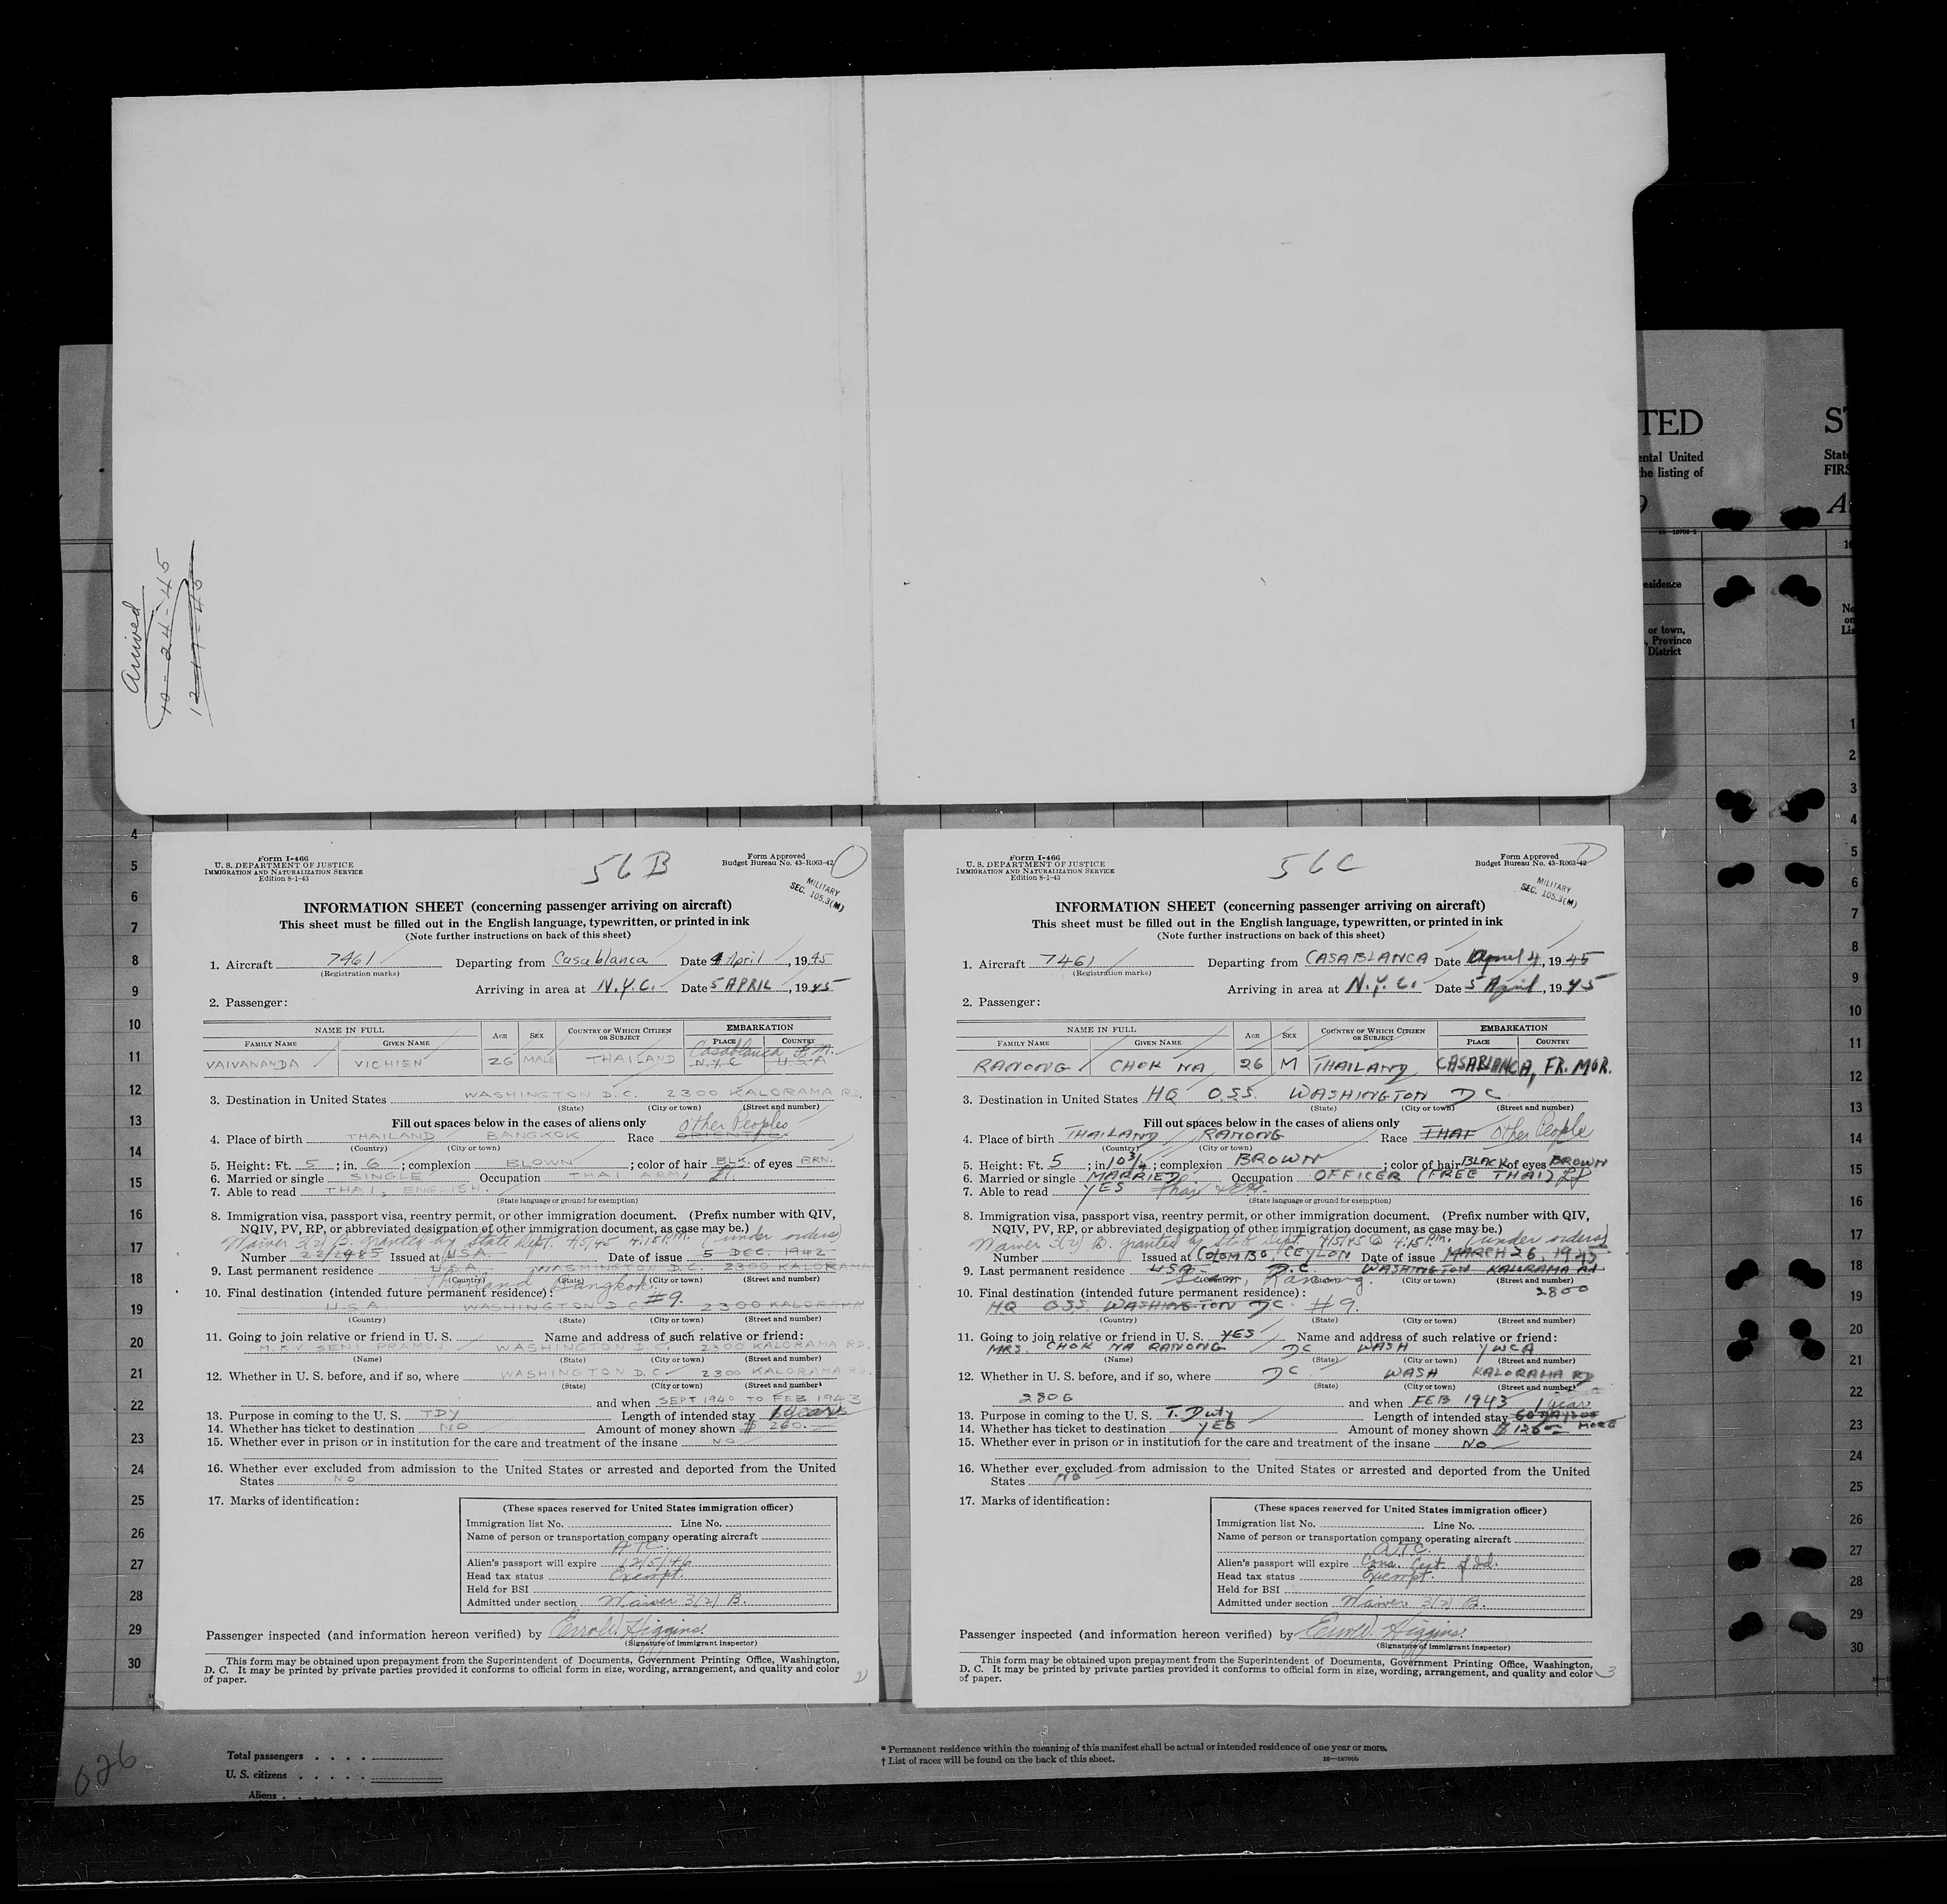 TED
ST
ental United
State
the listing of
FIRS
16—18706-1
esidence
or town,
, Province
District
Arrived
10-24-45
Form I-466
U. S. DEPARTMENT OF JUSTICE
IMMIGRATION AND NATURALIZATION SERVICE
Edition 8-1-43
56 B
Form Approved
Budget Bureau No. 43-R063-42
MILITARY
SEC. 105.3(M)
INFORMATION SHEET (concerning passenger arriving on aircraft)
This sheet must be filled out in the English language, typewritten, or printed in ink
(Note further instructions on back of this sheet)
1. Aircraft 7461 Departing from Casablanca Date 4 April, 1945
(Registration marks)
Arriving in area at N.Y.C. Date 5 APRIL, 1945
2. Passenger:
NAME IN FULL AGE SEX COUNTRY OF WHICH CITIZEN OR SUBJECT EMBARKATION
FAMILY NAME GIVEN NAME PLACE COUNTRY
Casablanca Fr. M.
VAIVANANDA VICHIEN 26 MALE THAILAND N.Y.C U.S.A
3. Destination in United States WASHINGTON D.C. 2300 KALORAMA RD.
(State) (City or town) (Street and number)
Fill out spaces below in the cases of aliens only
Other Peoples
4. Place of birth THAILAND BANGKOK Race ORIENTAL
(Country) (City or town)
5. Height: Ft. 5; in. 6; complexion BLOWN; color of hair BLK. of eyes BRN.
6. Married or single SINGLE Occupation THAI ARMY Lt.
7. Able to read THAI, ENGLISH.
(State language or ground for exemption)
8. Immigration visa, passport visa, reentry permit, or other immigration document. (Prefix number with QIV,
NQIV, PV, RP, or abbreviated designation of other immigration document, as case may be.)
Waiver 3(2) B. granted by State Dept. 4/5/45 4:15 P.M. (under orders)
Number 22/2485 Issued at U.S.A. Date of issue 5 DEC. 1942
9. Last permanent residence U.S.A. WASHINGTON D.C. 2300 KALORAMA
Thailand Bangkok.
(Country) (State) (City or town) (Street and number)
10. Final destination (intended future permanent residence): #9.
U.S.A WASHINGTON D.C. 2300 KALORAMA
(Country) (State) (City or town) (Street and number)
11. Going to join relative or friend in U. S. Name and address of such relative or friend:
M.R.V. SENI PRAMOJ WASHINGTON D.C. 2300 KALORAMA RD.
(Name) (State) (City or town) (Street and number)
12. Whether in U. S. before, and if so, where WASHINGTON D.C. 2300 KALORAMA RD.
(State) (City or town) (Street and number)
and when SEPT 1940 TO FEB 1943
13. Purpose in coming to the U. S. TDY Length of intended stay
14. Whether has ticket to destination NO Amount of money shown $ 260.
15. Whether ever in prison or in institution for the care and treatment of the insane NO
16. Whether ever excluded from admission to the United States or arrested and deported from the United
States NO
17. Marks of identification:
(These spaces reserved for United States immigration officer)
Immigration list No. Line No.
Name of person or transportation company operating aircraft
ATC.
Alien's passport will expire 12/5/46
Head tax status Exempt.
Held for BSI
Admitted under section Waiver 3(2) B.
Passenger inspected (and information hereon verified) by Errol Higgins.
(Signature of immigrant inspector)
This form may be obtained upon prepayment from the Superintendent of Documents, Government Printing Office, Washington,
D. C. It may be printed by private parties provided it conforms to official form in size, wording, arrangement, and quality and color
of paper.
2
Form I-466
U. S. DEPARTMENT OF JUSTICE
IMMIGRATION AND NATURALIZATION SERVICE
Edition 8-1-43
56 C
Form Approved
Budget Bureau No. 43-R063-42
MILITARY
SEC. 105.3(M)
INFORMATION SHEET (concerning passenger arriving on aircraft)
This sheet must be filled out in the English language, typewritten, or printed in ink
(Note further instructions on back of this sheet)
1. Aircraft 7461 Departing from CASABLANCA Date April 4, 1945
(Registration marks)
Arriving in area at N.Y.C. Date 5 April, 1945
2. Passenger:
NAME IN FULL AGE SEX COUNTRY OF WHICH CITIZEN OR SUBJECT EMBARKATION
FAMILY NAME GIVEN NAME PLACE COUNTRY
RANONG CHOK NA 26 M THAILAND CASABLANCA, FR. MOR.
3. Destination in United States HQ O.S.S. WASHINGTON DC
(State) (City or town) (Street and number)
Fill out spaces below in the cases of aliens only
4. Place of birth THAILAND RANONG Race THAI Other People
(Country) (City or town)
5. Height: Ft. 5; in. 10 3/4; complexion BROWN; color of hair BLACK of eyes BROWN
6. Married or single MARRIED Occupation OFFICER (FREE THAI) Lt
7. Able to read YES Thai & Eng.
(State language or ground for exemption)
8. Immigration visa, passport visa, reentry permit, or other immigration document. (Prefix number with QIV,
NQIV, PV, RP, or abbreviated designation of other immigration document, as case may be.)
Waiver 3(2) B. granted by State Dept. 4/5/45 @ 4:15 P.M. (under orders)
Number Issued at COLOMBO, CEYLON Date of issue MARCH 26, 1945
9. Last permanent residence U.S.A. D.C WASHINGTON KALORAMA Rd
Siam, Ranong.
(Country) (State) (City or town) (Street and number)
10. Final destination (intended future permanent residence): 2800
HQ OSS WASHINGTON DC. #9.
(Country) (State) (City or town) (Street and number)
11. Going to join relative or friend in U. S. YES Name and address of such relative or friend:
MRS. CHOK NA RANONG DC WASH YWCA
(Name) (State) (City or town) (Street and number)
12. Whether in U. S. before, and if so, where DC WASH KALORAMA RD
(State) (City or town) (Street and number)
2806 and when FEB 1943 1 year
13. Purpose in coming to the U. S. T. Duty Length of intended stay 60 DAYS OR MORE
14. Whether has ticket to destination YES Amount of money shown
15. Whether ever in prison or in institution for the care and treatment of the insane NO
16. Whether ever excluded from admission to the United States or arrested and deported from the United
States NO
17. Marks of identification:
(These spaces reserved for United States immigration officer)
Immigration list No. Line No.
Name of person or transportation company operating aircraft
A.T.C.
Alien's passport will expire Cons. Cert. of Id.
Head tax status Exempt.
Held for BSI
Admitted under section Waiver 3(2) B.
Passenger inspected (and information hereon verified) by Errol Higgins.
(Signature of immigrant inspector)
This form may be obtained upon prepayment from the Superintendent of Documents, Government Printing Office, Washington,
D. C. It may be printed by private parties provided it conforms to official form in size, wording, arrangement, and quality and color
of paper.
3
026
Total passengers . . . .
U. S. citizens . . . . .
Aliens . .
* Permanent residence within the meaning of this manifest shall be actual or intended residence of one year or more.
† List of races will be found on the back of this sheet.
16—18706b